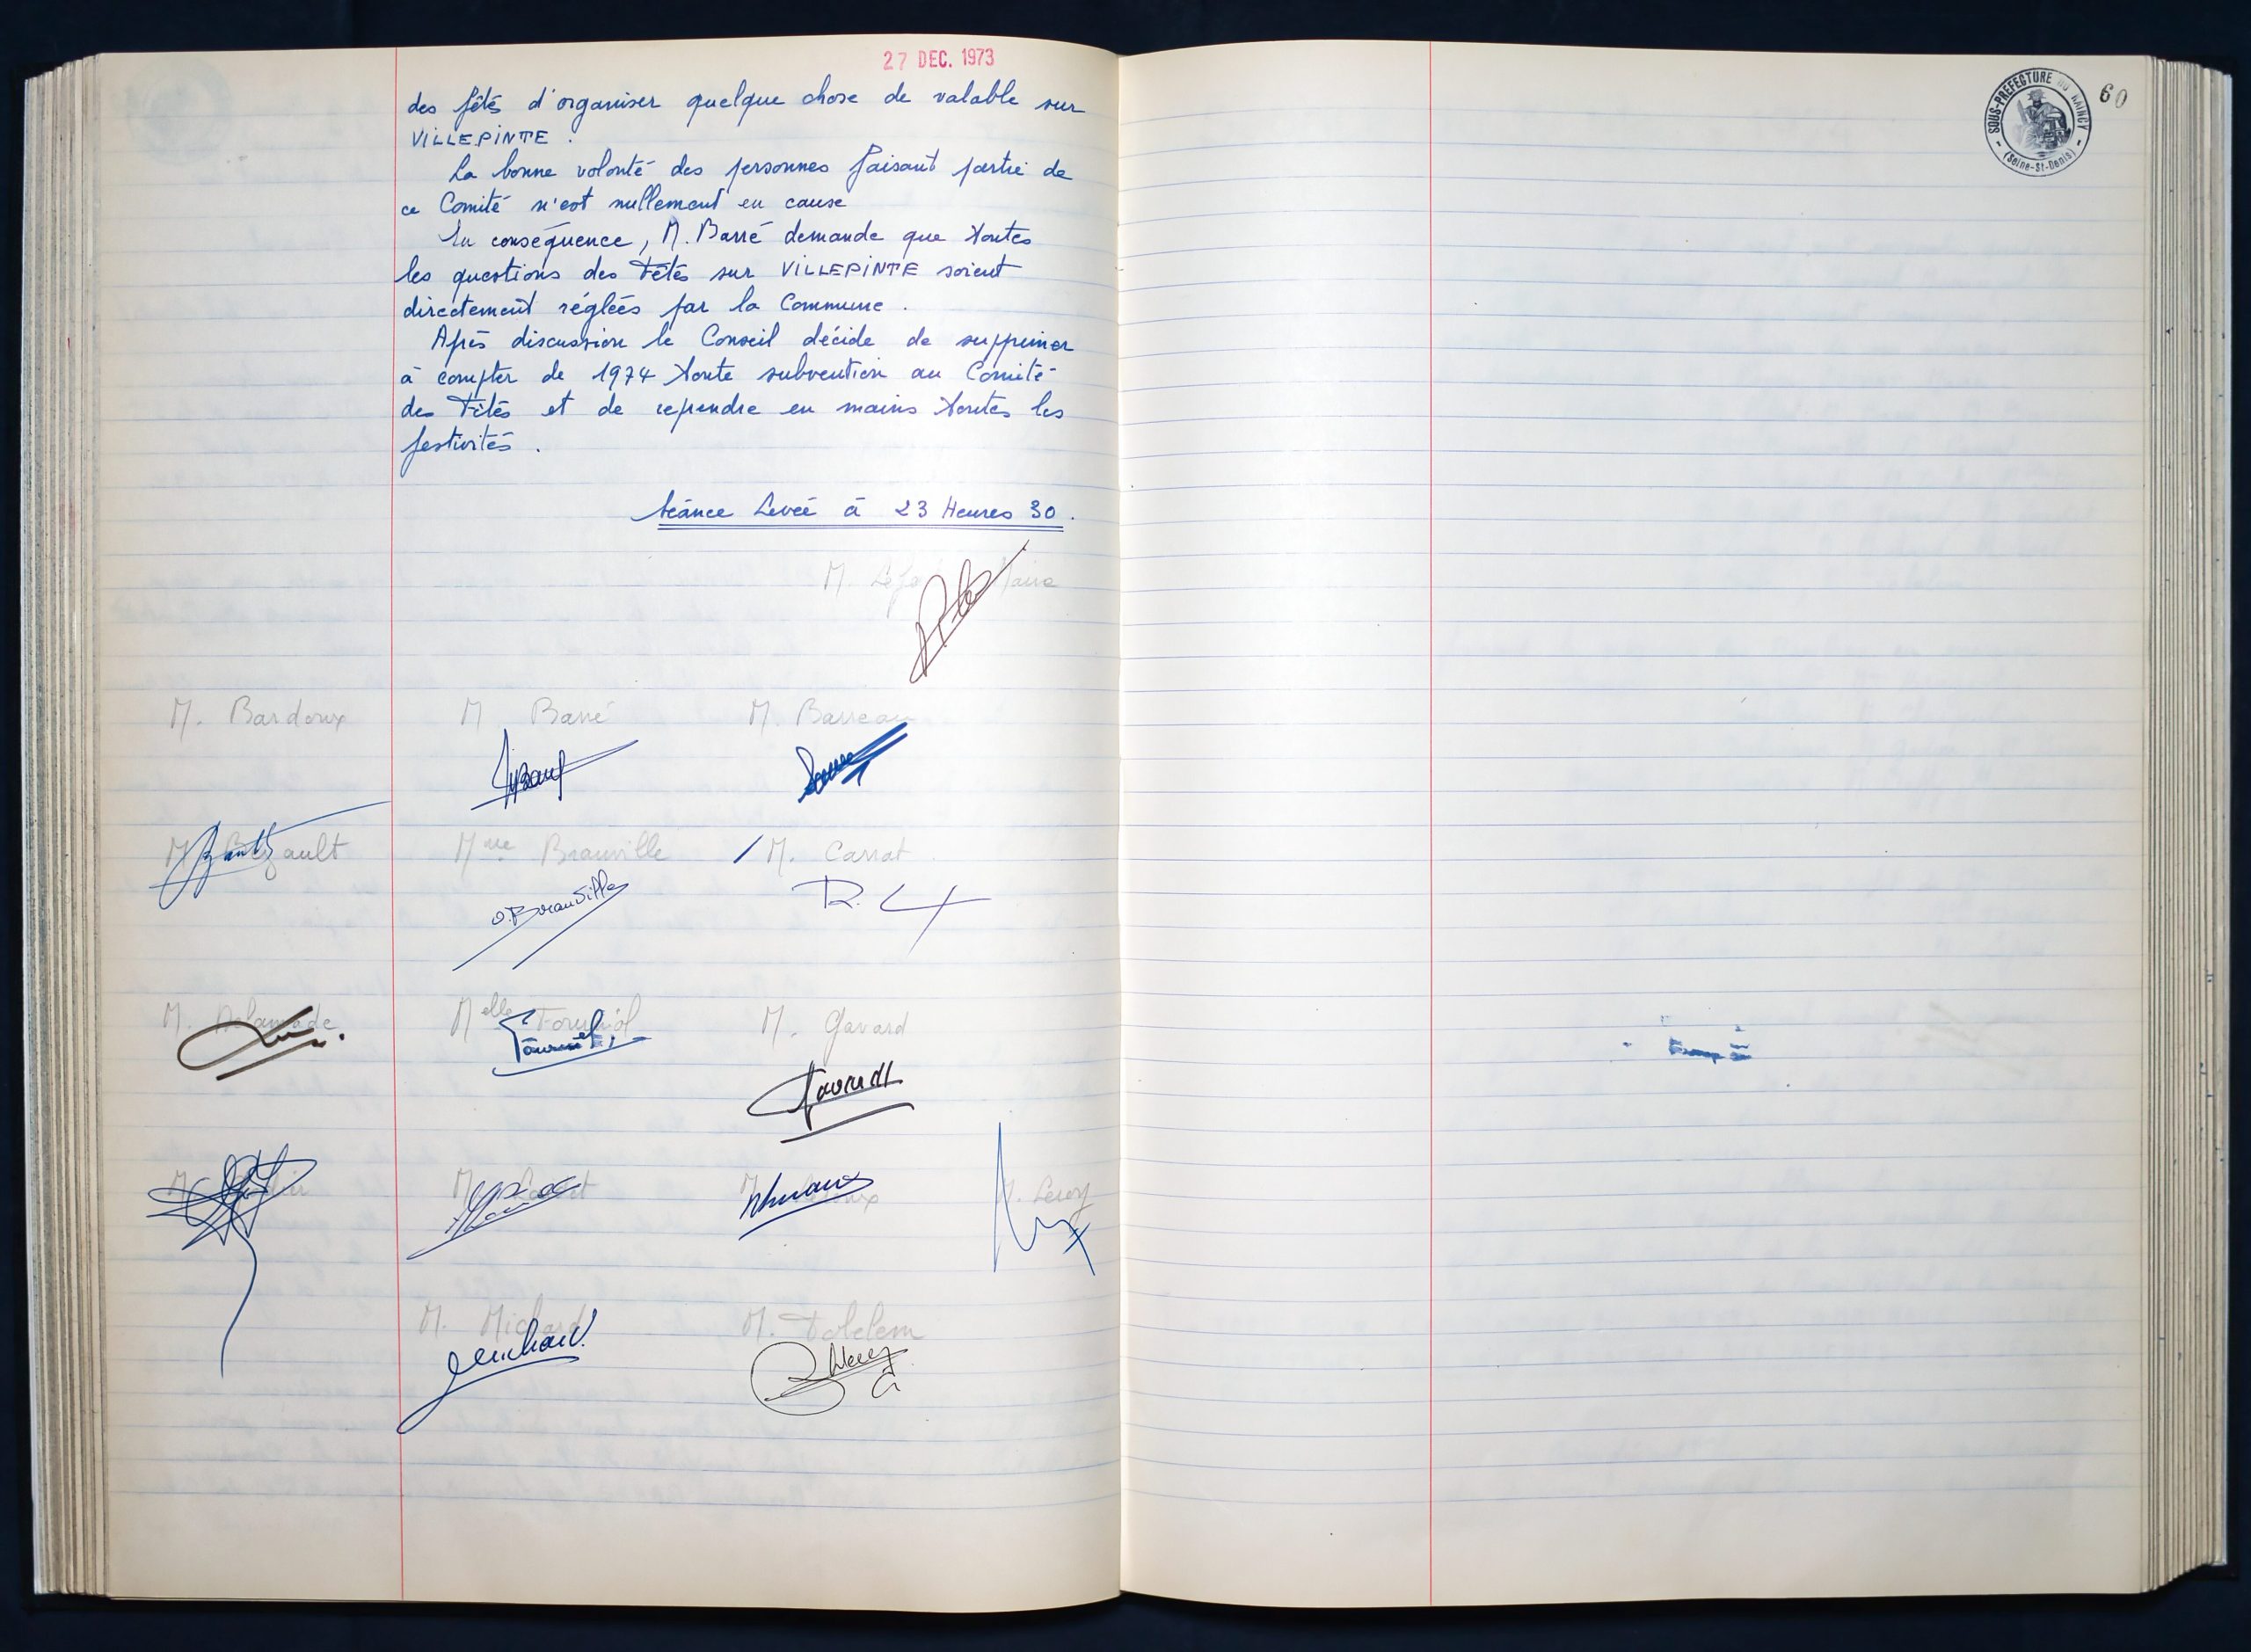 27 DEC. 1973
des fêtes d'organiser quelque chose de valable sur
VILLEPINTE.
La bonne volonté des personnes faisant partie de
ce Comité n'est nullement en cause
En conséquence, M. Barré demande que toutes
les questions des Fêtes sur VILLEPINTE soient
directement réglées par la Commune.
Après discussion le Conseil décide de supprimer
à compter de 1974 toute subvention au Comité
des Fêtes et de reprendre en mains toutes les
festivités.
Séance Levée à 23 Heures 30.
M. Maire
M. Bardoux M Barré M. Barreau
M Mme Brauville M. Carrat
O. Brauville R.
M. Melle Fourniol M. Gavard
M. M. M. M. Leroy
M. Michard M. Tolclem
SOUS-PREFECTURE DU RAINCY
(Seine-St-Denis)
60